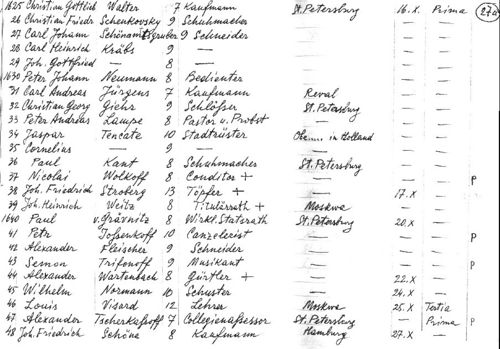 1625 Christian Gottlieb Walter 7 Kaufmann St. Petersburg 16.X Prima 27a
26 Christian Friedr Schenkovsky 9 Schuhmacher — — —
27 Carl Johann Schönamsgruber 9 Schneider — — —
28 Carl Heinrich Kräbs 9 — — — —
29 Joh. Gottfried — 8 — — — —
1630 Peter Johann Neumann 8 Bedienter — — —
31 Carl Andreas Jürgens 7 Kaufmann Reval — —
32 Christian Georg Giehr 9 Schlößer St. Petersburg — —
33 Peter Andreas Lampe 8 Pastor u. Probst — — —
34 Jaspar Tencate 10 in Holland — —
35 Cornelius — 9 — — — —
36 Paul Kant 8 Schuhmacher St. Petersburg — —
37 Nicolai Wolkoff 8 Conditor + — — — p
38 Joh. Friedrich Stroberg 13 Töpfer + — 17.X —
39 Joh. Heinrich Weitz 8 Titulärrath + Moskwa — —
1640 Paul v. Grävnitz 8 Wirkl. Statsrath St. Petersburg 20.X —
41 Petr Toßenkoff 10 Canzelerist — — — p
42 Alexander Fleischer 9 Schneider — — —
43 Semon Trifonoff 9 Musikant — — — p
44 Alexander Wartenbach 8 Gürtler + — 22.X —
45 Wilhelm Normann 10 Schuster — 24.X —
46 Louis Visard 12 Lehrer Moskwa 25.X Tertia
47 Alexander Tscherkaßoff 7 Collegienaßessor St. Petersburg — Prima p
48 Joh. Friedrich Schöne 8 Kaufmann Hamburg 27.X —